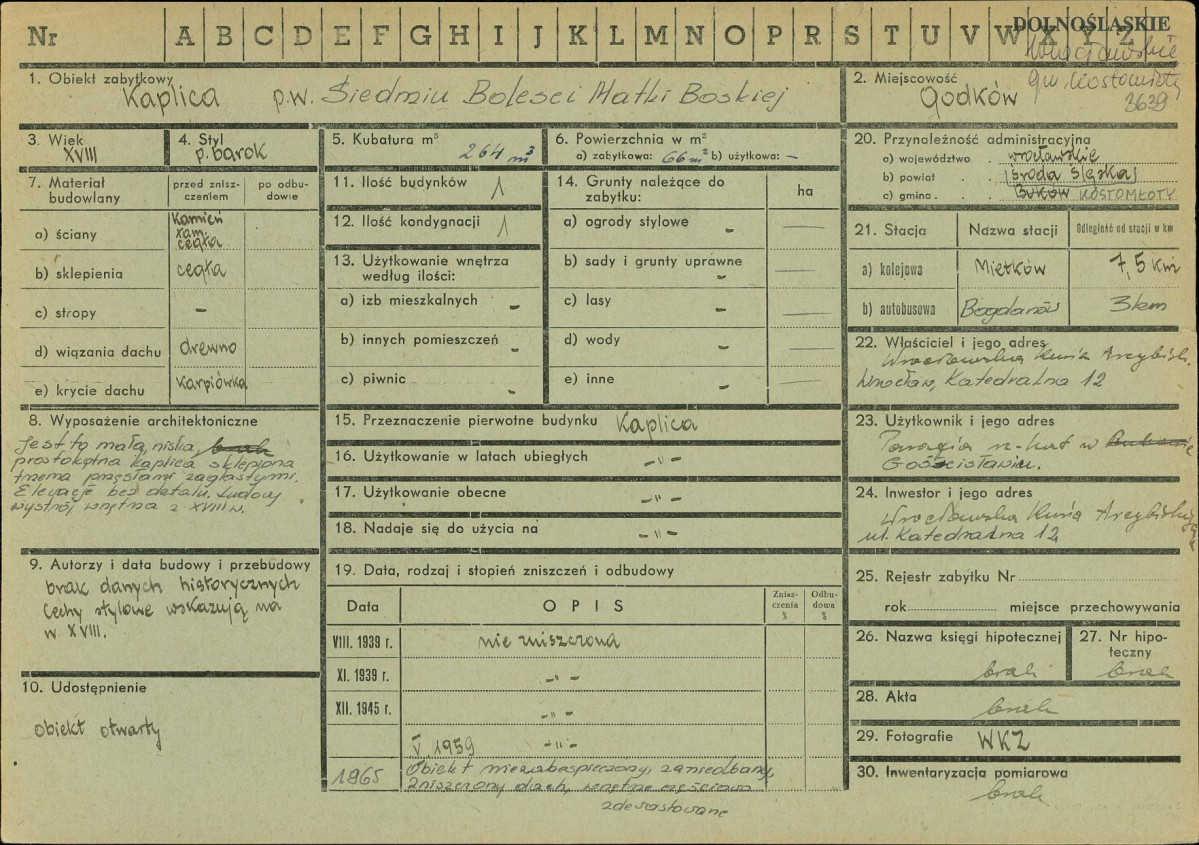 Nr A B C D E F G H I J K L M N O P R S T U V W X Y Z
DOLNOŚLĄSKIE
wrocławskie
gm. Kostomłoty
3639
1. Obiekt zabytkowy
Kaplica p.w. Siedmiu Bolesci Matki Boskiej
2. Miejscowość
Godków
3. Wiek
XVIII
4. Styl
p. barok
5. Kubatura m³
264 m³
6. Powierzchnia w m²
a) zabytkowa: 66 m² b) użytkowa: –
7. Materiał budowlany
przed znisz-
czeniem
po odbu-
dowie
a) ściany
kamień
łam.
cegła
b) sklepienia cegła
c) stropy -
d) wiązania dachu drewno
e) krycie dachu karpiówka
8. Wyposażenie architektoniczne
Jest to mała, niska,
prostokątna kaplica sklepiona
trzema przęsłami żaglastymi.
Elewacje bez detalu. Ludowy
wystrój wnętrza z XVIII w.
9. Autorzy i data budowy i przebudowy
brak danych historycznych
Cechy stylowe wskazują na
w XVIII.
10. Udostępnienie
obiekt otwarty
11. Ilość budynków 1
12. Ilość kondygnacji 1
13. Użytkowanie wnętrza
według ilości:
a) izb mieszkalnych -
b) innych pomieszczeń -
c) piwnic -
14. Grunty należące do
zabytku:
ha
a) ogrody stylowe - —
b) sady i grunty uprawne - —
c) lasy - —
d) wody - —
e) inne - —
15. Przeznaczenie pierwotne budynku Kaplica
16. Użytkowanie w latach ubiegłych -"-
17. Użytkowanie obecne -"-
18. Nadaje się do użycia na -"-
19. Data, rodzaj i stopień zniszczeń i odbudowy
Data OPIS
Znisz-
czenia
%
Odbu-
dowa
%
VIII. 1939 r. nie zniszczona
XI. 1939 r. -"-
XII. 1945 r. -"-
V. 1959 -"-
1965 Obiekt niezabezpieczony, zaniedbany,
zniszczony dach, wnętrze częściowo
zdewastowane
20. Przynależność administracyjna
a) województwo wrocławskie
b) powiat Środa Śląska
c) gmina Buków KOSTOMŁOTY
21. Stacja Nazwa stacji Odległość od stacji w km
a) kolejowa Mietków 7,5 km
b) autobusowa Bogdanów 3 km
22. Właściciel i jego adres
Wrocławska Kuria Arcybisk.
Wrocław, Katedralna 12
23. Użytkownik i jego adres
Parafia rz-kat w
Gościsławiu.
24. Inwestor i jego adres
Wrocławska Kuria Arcybiskup
ul. Katedralna 12
25. Rejestr zabytku Nr
rok miejsce przechowywania
26. Nazwa księgi hipotecznej
brak
27. Nr hipo-
teczny
brak
28. Akta
brak
29. Fotografie WKZ
30. Inwentaryzacja pomiarowa
brak